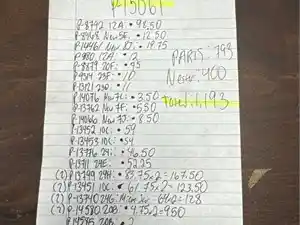 P-15061
P-8792 12A: • 98.50
P-8968 New 5E: • 12.50
P-14461 New 10: • 19.75
P-980 12A: • 2
P-8879 20F: • 95
P-9514 23F: • 10
P-13121 23D: • 11
P-14076 New 7C: • 3.50
P-13762 New 7F: • 5.50
P-14066 New 7J: • 8.50
P-13452 10C: • 59
P-13453 10C: • 54
P-13776 24: • 46.50
24E: • 52.25
(2) P-13799 24H: • 83.75 x 2 = 167.50
(2) P-13451 10C: • 61.75 x 2 = 123.50
(2) P-13740 24G: 64 x 2 = 128
(2) P-14580 20B: • 4.75 x 2 = 9.50
P-14585 20B: • 2
PARTS: 793
400
Total: 1,193